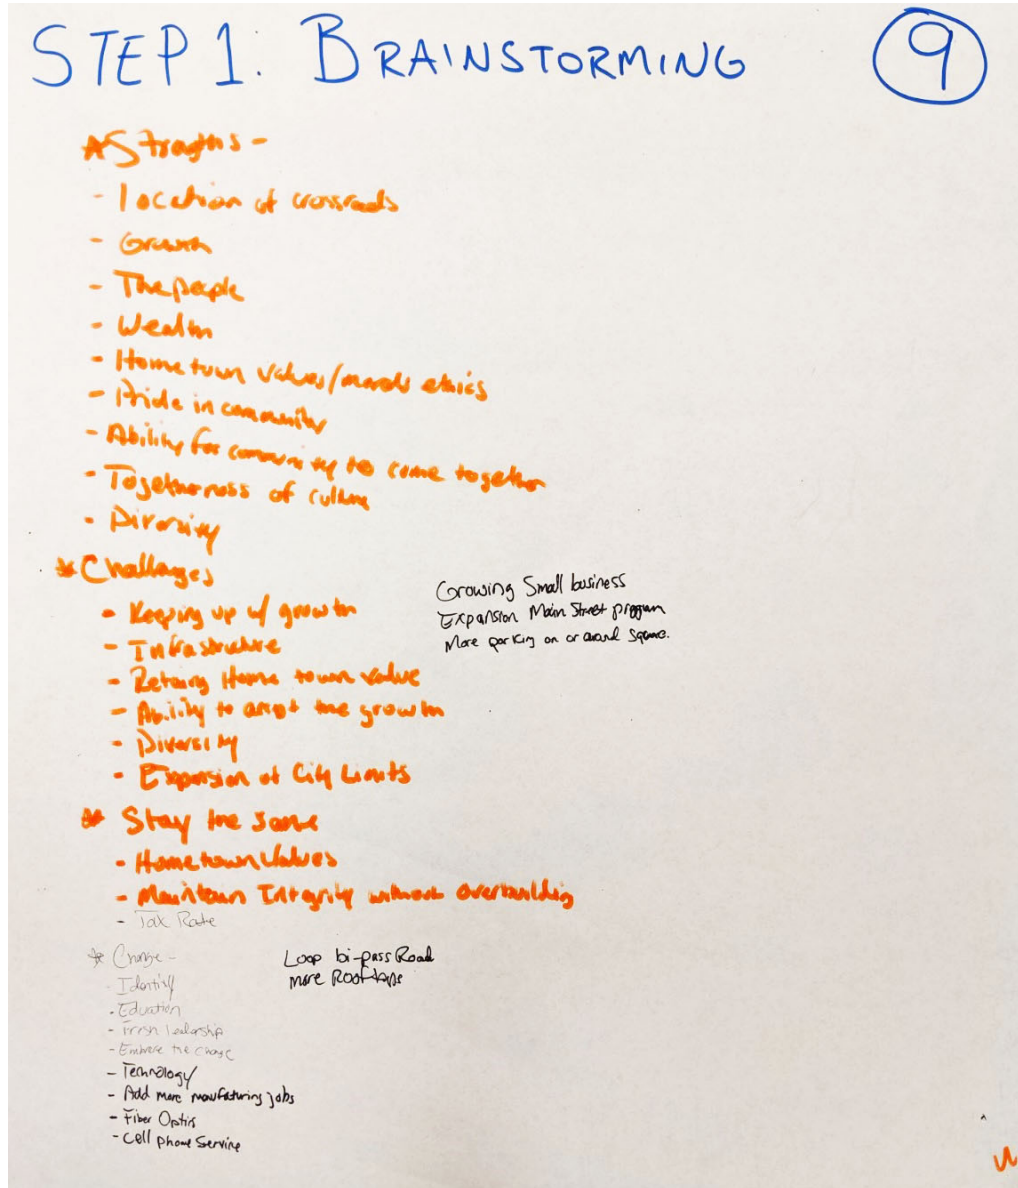 STEP 1: BRAINSTORMING
9
* Stragths -
- location at crossroads
- Growth
- The people
- Wealth
- Hometown values/morals ethics
- Pride in community
- Ability for community to come together
- Togetherness of culture
- Diversity
* Challenges
- Keeping up w/ growth
- Infrastructure
- Retaing Home town value
- Ability to accept the growth
- Diversity
- Expansion of City Limits
Growing Small business
Expansion Main Street program
More parking on or around Square.
* Stay the same
- Hometown Values
- Maintain Integrity without overbuilding
- Tax Rate
* Change -
- Identity
- Eduation
- Fresh leadership
- Embrace the change
- Technology
- Add more manufaturing jobs
- Fiber Optics
- Cell phone Service
Loop bi-pass Road
more Rooftops